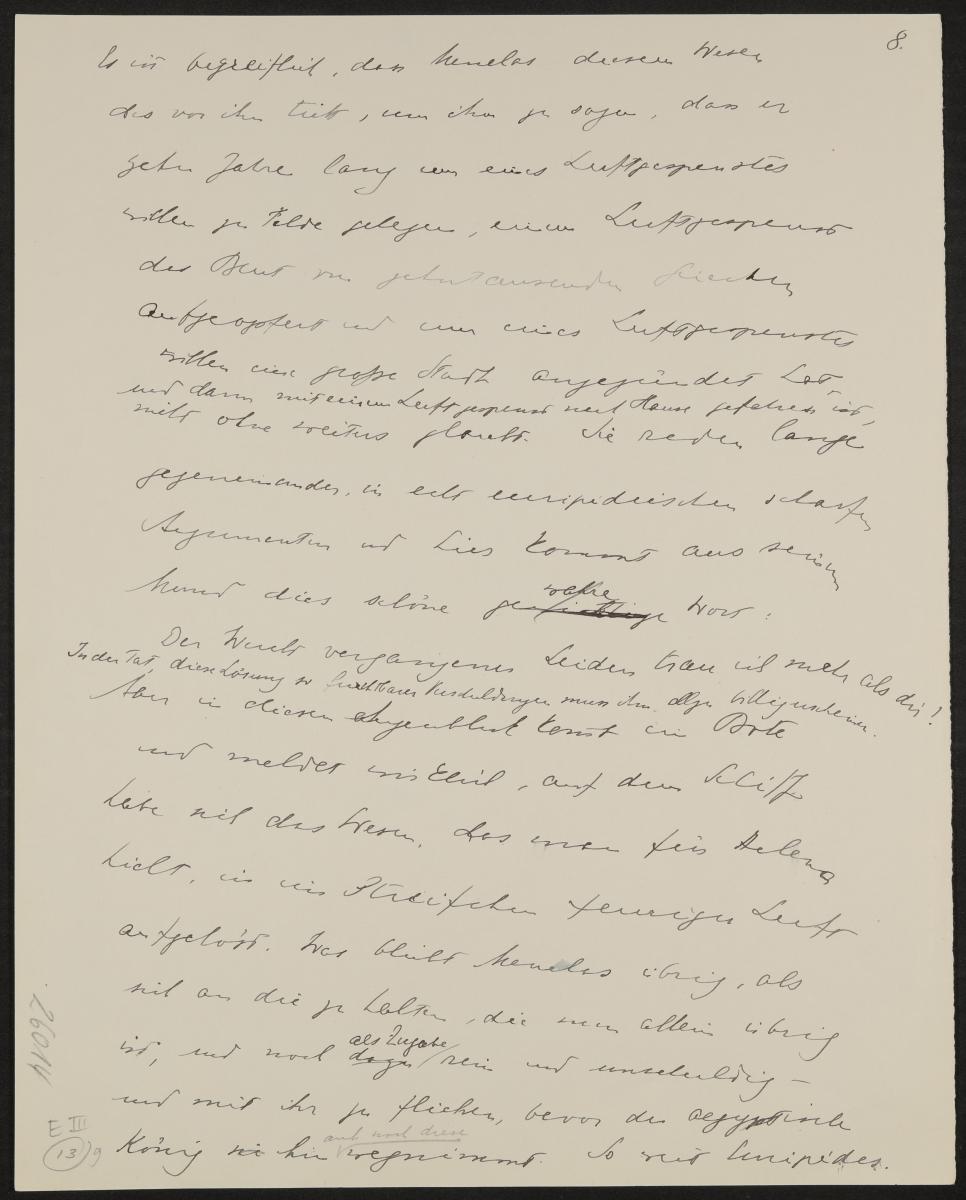 8.
Es ist begreiflich, dass Menelas diesem Wesen
das vor ihn tritt, um ihm zu sagen, dass er
zehn Jahre lang um eines Luftgespenstes
willen zu Felde gelegen, einem Luftgespenst
das Blut von zehntausenden Griechen
aufgeopfert und um eines Luftgespenstes
willen eine große Stadt angezündet hat,
und dann mit einem Luftgespenst nach Hause gefahren ist,
nicht ohne weiteres glaubt. Sie reden lange
gegeneinander, in echt euripideischen scharfen
Argumenten und hier kommt aus seinem
wahre
Mund dies schöne Wort:
Der Wucht vergangener Leiden trau ich mehr als dir!
In der Tat, diese Lösung so furchtbarer Verschuldungen muss ihm billig erscheinen.
Aber in diesem Augenblick kommt ein Bote
und meldet, auf dem Schiff
habe sich das Wesen, das man für Helena
hielt, in ein Streifchen feuriger Luft
aufgelöst. Was bleibt Menelas übrig, als
sich an die zu halten, die nun allein übrig
als Zugabe
ist, und noch dazu rein und unschuldig –
und mit ihr zu fliehen, bevor der aegyptische
auch noch diese
König sie ihm wegnimmt. So weit Euripides.
26014
E III
13
9